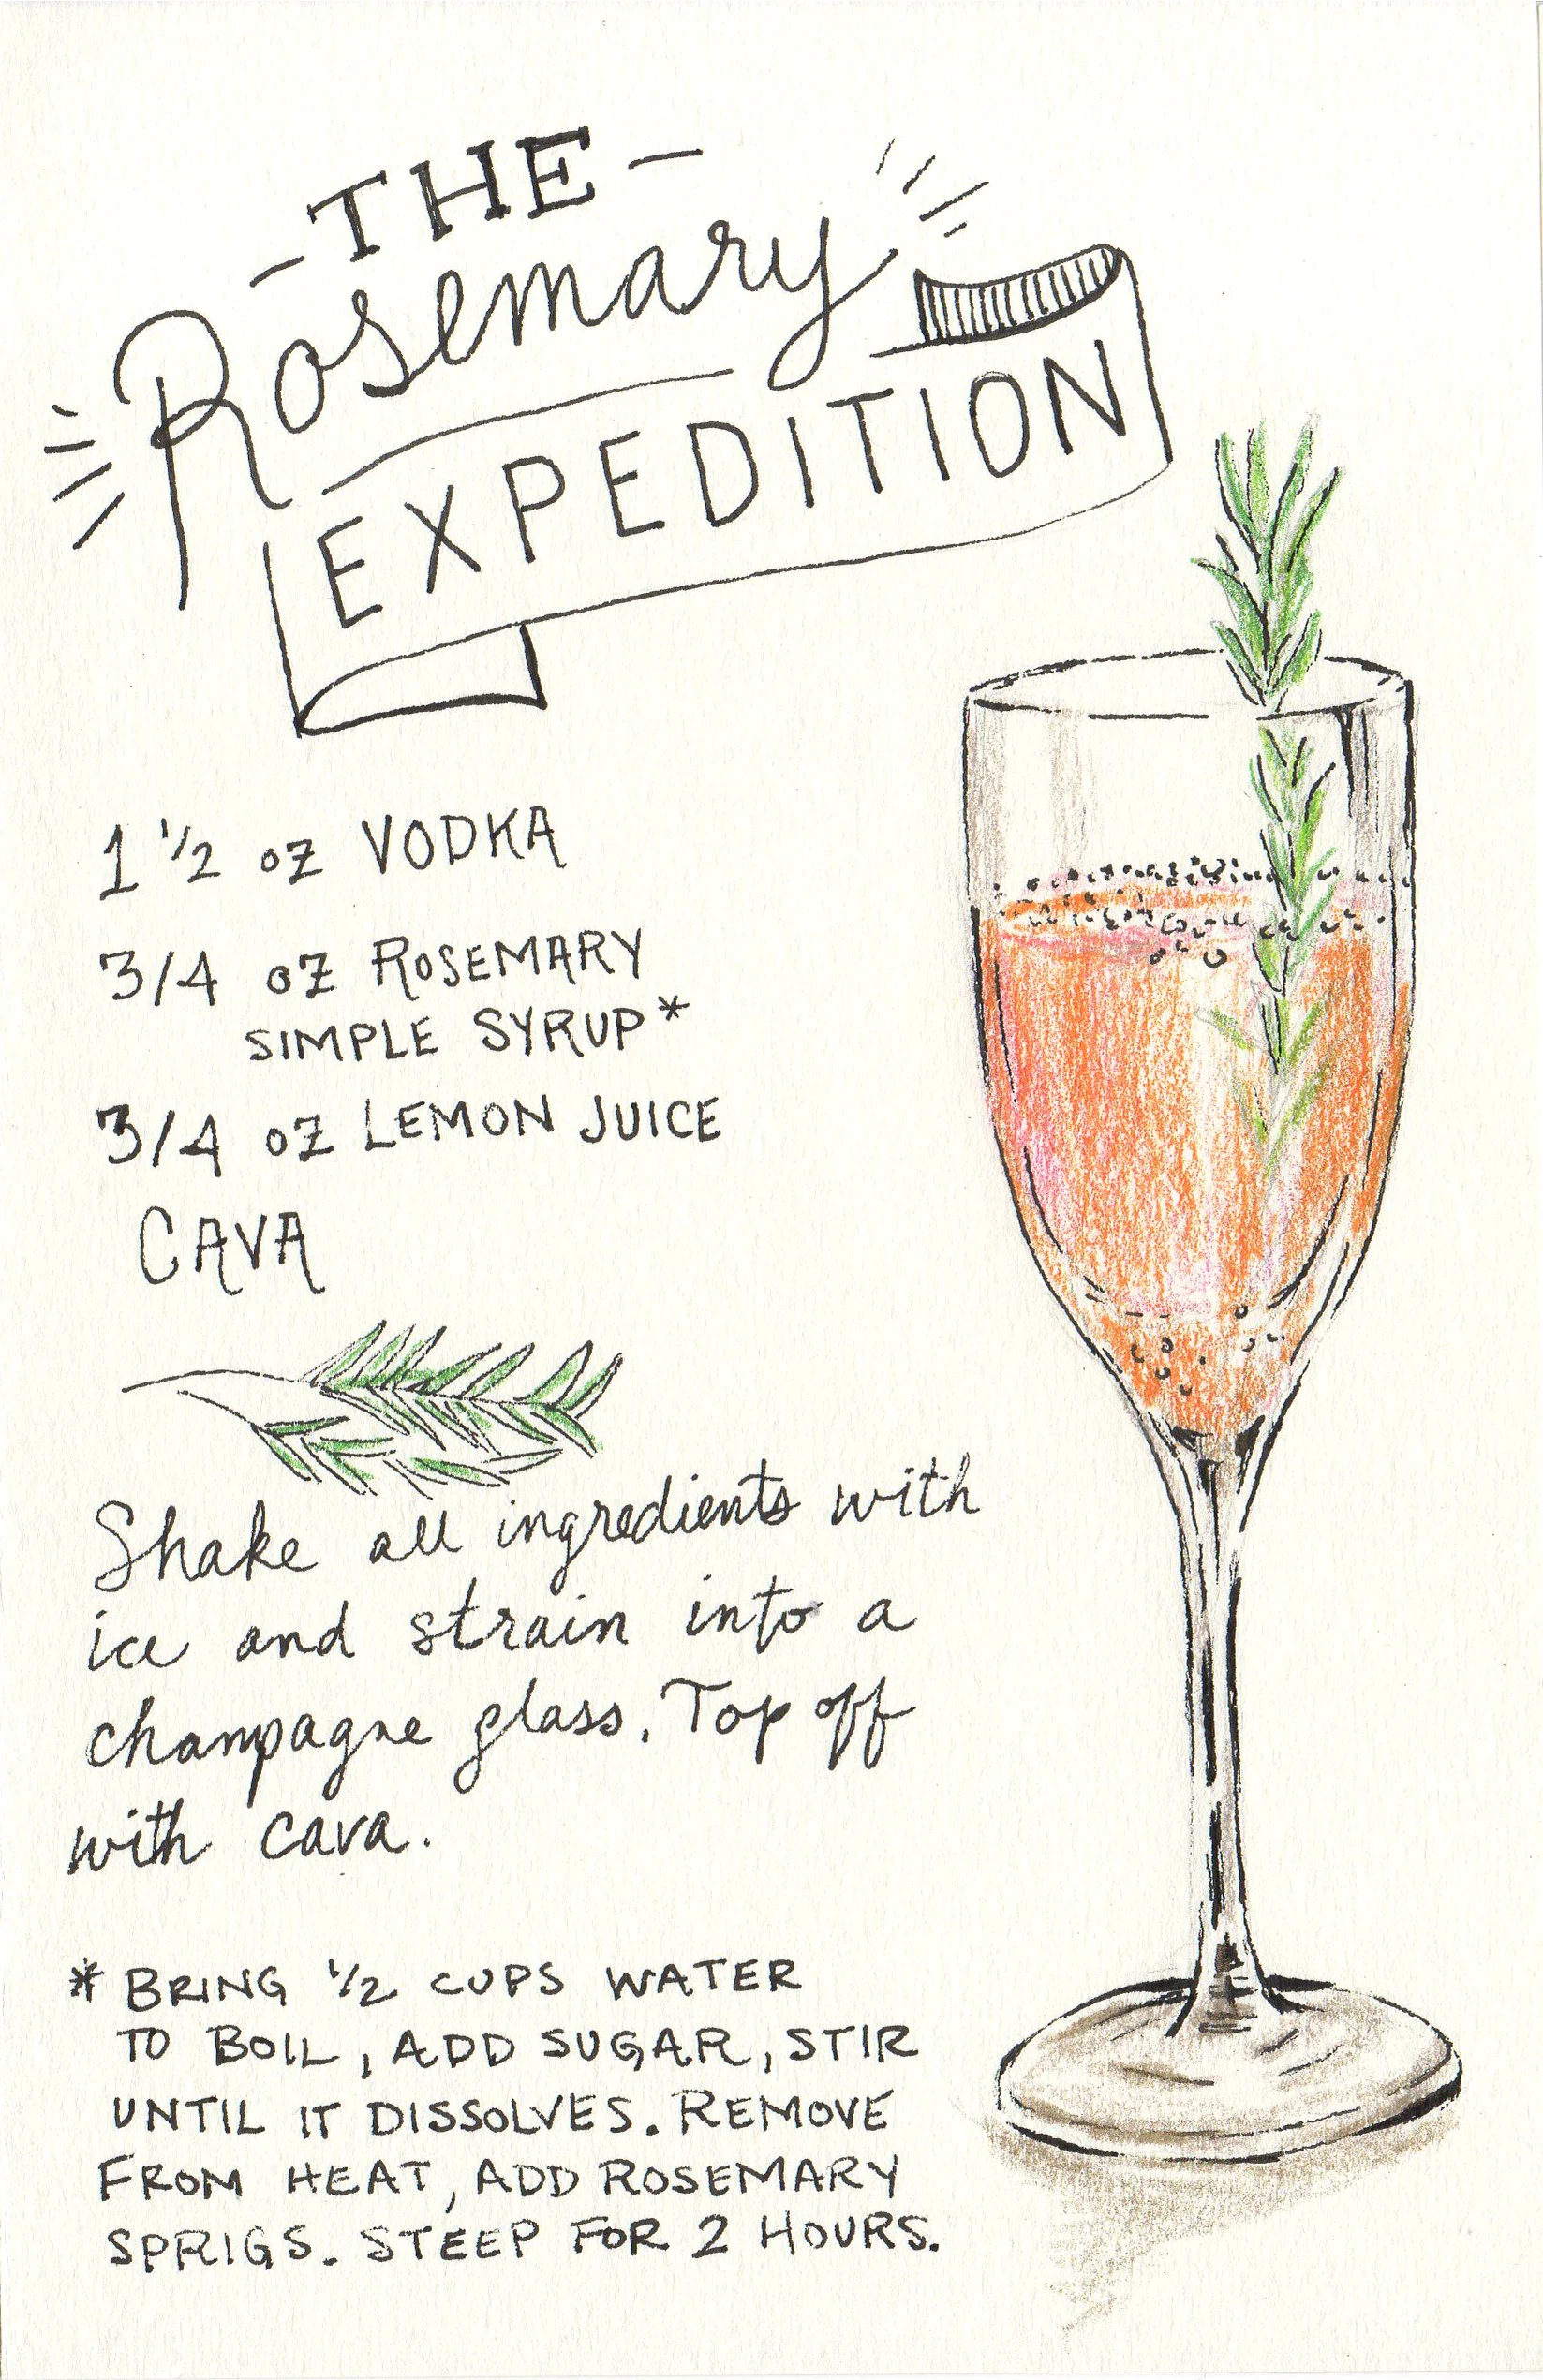 -THE-
Rosemary
EXPEDITION
1 1/2 oz VODKA
3/4 oz ROSEMARY
SIMPLE SYRUP*
3/4 oz LEMON JUICE
CAVA
Shake all ingredients with
ice and strain into a
champagne glass. Top off
with cava.
* BRING 1/2 CUPS WATER
TO BOIL, ADD SUGAR, STIR
UNTIL IT DISSOLVES. REMOVE
FROM HEAT, ADD ROSEMARY
SPRIGS. STEEP FOR 2 HOURS.